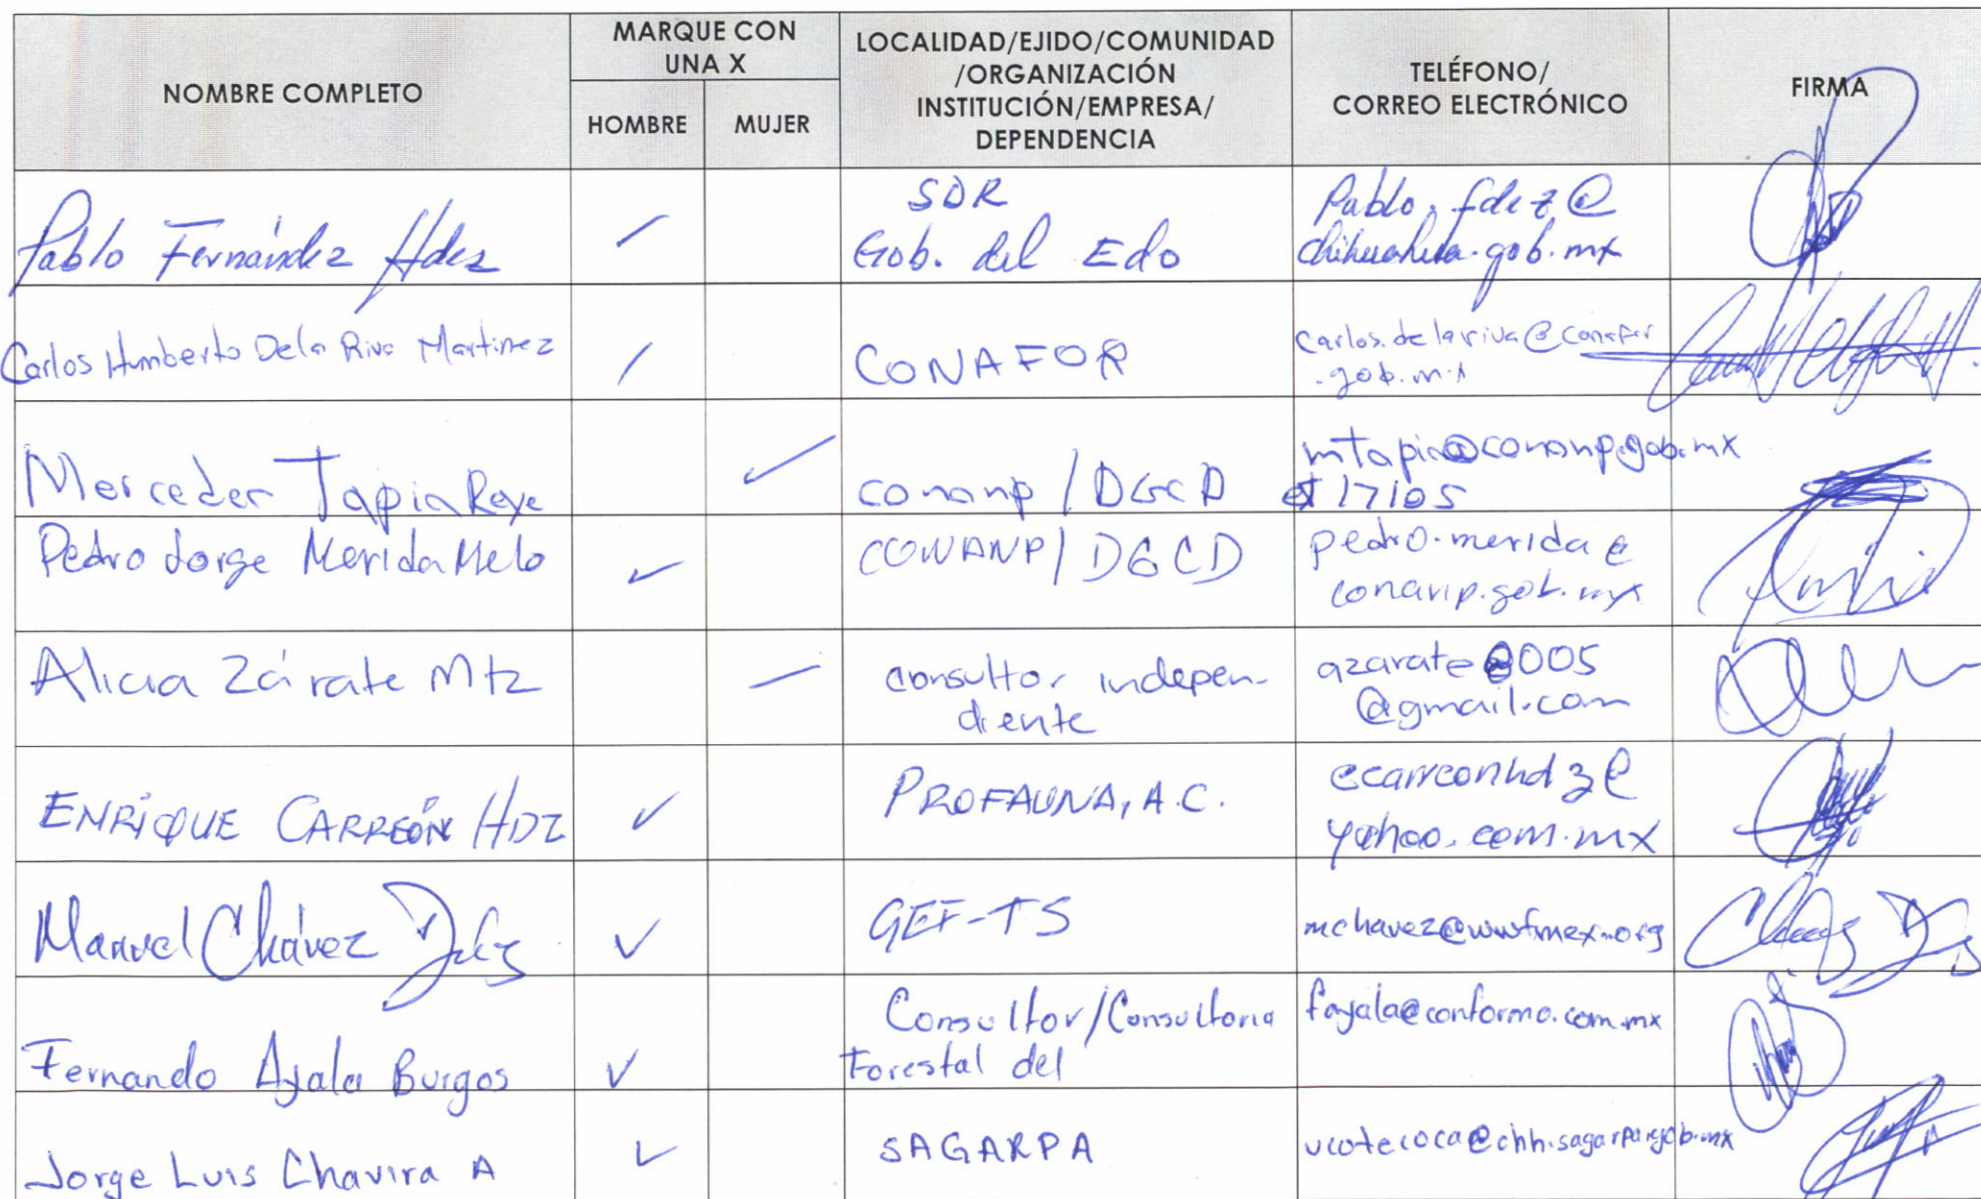 NOMBRE COMPLETO
MARQUE CON
UNA X
HOMBRE
MUJER
LOCALIDAD/EJIDO/COMUNIDAD
/ORGANIZACIÓN
INSTITUCIÓN/EMPRESA/
DEPENDENCIA
TELÉFONO/
CORREO ELECTRÓNICO
FIRMA
Pablo Fernández Hdez
SDR
Gob. del Edo
Pablo.fdez@
chihuahua.gob.mx
Carlos Humberto De la Riva Martinez
CONAFOR
carlos.delariva@conafor
.gob.mx
Mercedes Tapia Reye
conanp/DGCD
mtapia@conanp.gob.mx
17105
Pedro Jorge Merida Melo
CONANP/DGCD
pedro.merida@
conanp.gob.mx
Alicia Zárate Mtz
consultor indepen-
diente
azarate 005
@gmail.com
ENRIQUE CARREÓN HDZ
PROFAUNA, A.C.
ecarreonhdz@
yahoo.com.mx
Manuel Chávez
GEF-TS
mchavez@wwfmex.org
Fernando Ayala Burgos
Consultor/Consultoria
Forestal del
fayala@conformo.com.mx
Jorge Luis Chavira A
SAGARPA
ucotecoca@chh.sagarpa.gob.mx